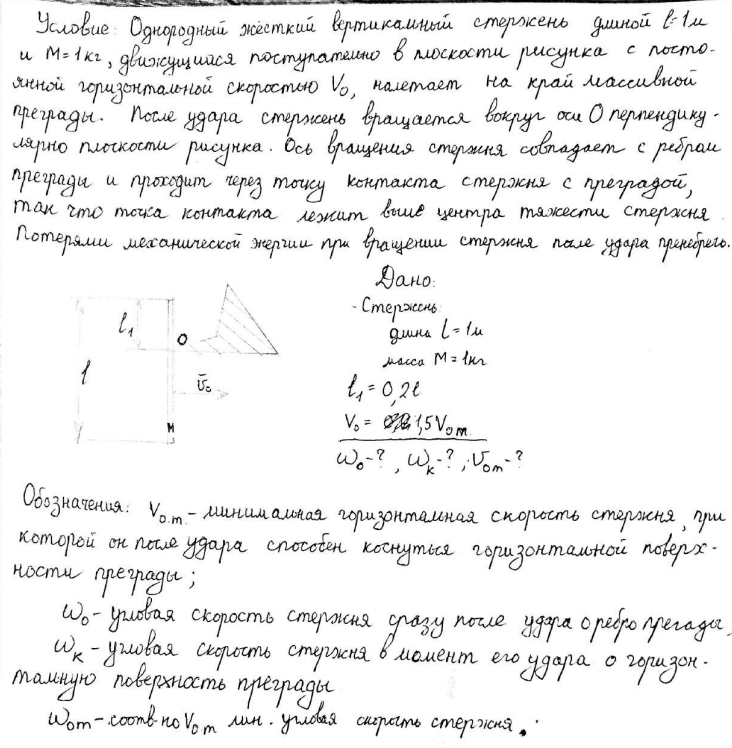 Условие: Однородный жёсткий вертикальный стержень длиной l=1м
и M=1кг, движущийся поступательно в плоскости рисунка с посто-
янной горизонтальной скоростью V₀, налетает на край массивной
преграды. После удара стержень вращается вокруг оси O перпендику-
лярно плоскости рисунка. Ось вращения стержня совпадает с ребром
преграды и проходит через точку контакта стержня с преградой,
так что точка контакта лежит выше центра тяжести стержня.
Потерями механической энергии при вращении стержня после удара пренебречь.
Дано:
- Стержень:
длина L=1м
масса M=1кг
l₁=0,2l
V₀= 1,5V₀m
ω₀-?, ωк-?, V₀m-?
l₁
O
l
v̄₀
M
Обозначения: V₀.m.- минимальная горизонтальная скорость стержня, при
которой он после удара способен коснуться горизонтальной поверх-
ности преграды;
ω₀- угловая скорость стержня сразу после удара о ребро преграды,
ωк- угловая скорость стержня в момент его удара о горизон-
тальную поверхность преграды
ω₀m- соотв-но V₀m мин. угловая скорость стержня.